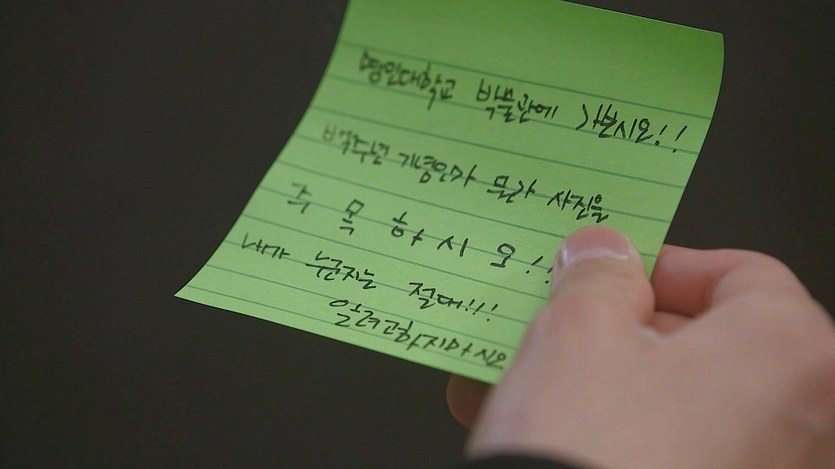 명인대학교 박물관에 가보시오!!
백주년 기념인가 뭔가 사진을
주 목 하 시 오!!
내가 누군지는 절대!!!
알려고하지마시오